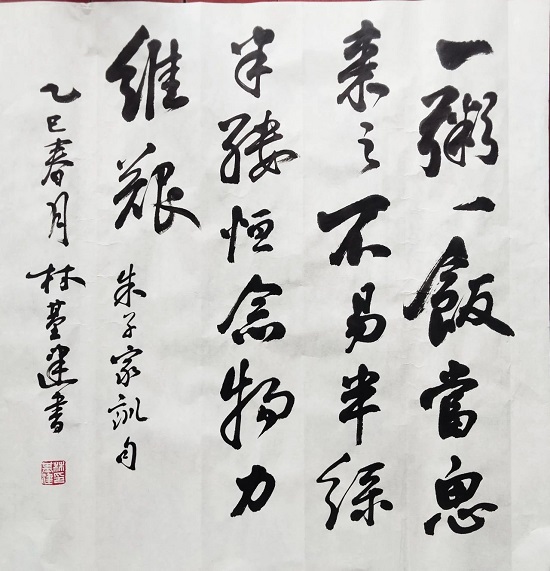 一粥一飯當思
来之不易半絲
半縷恒念物力
維艱 朱子家訓句
乙巳春月 林建書